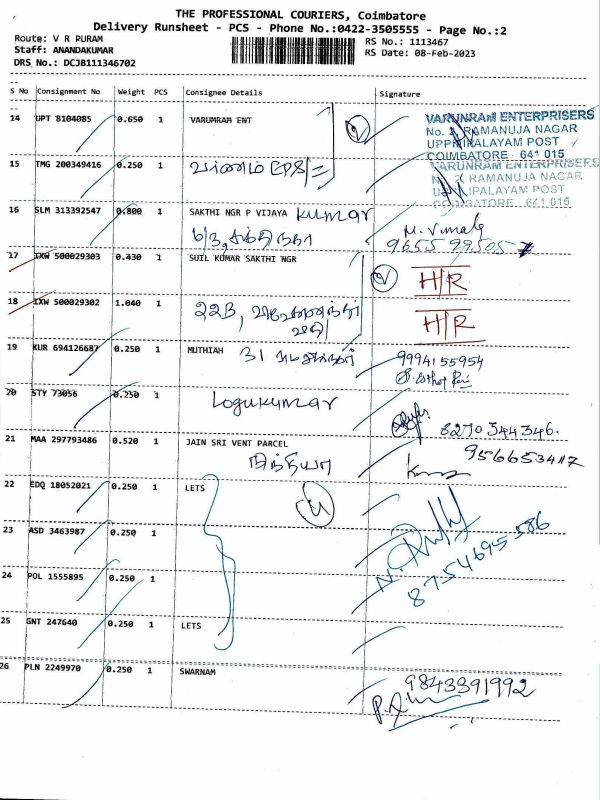 THE PROFESSIONAL COURIERS, Coimbatore
Delivery Runsheet - PCS - Phone No.:0422-3505555 - Page No.:2
Route: V R PURAM
RS No.: 1113467
Staff: ANANDAKUMAR
RS Date: 08-Feb-2023
DRS No.: DCJB111346702
S No Consignment No Weight PCS Consignee Details Signature
14 UPT 8104085 0.650 1 VARUMRAM ENT
VARUNRAM ENTERPRISERS
No. RAMANUJA NAGAR
UPPILIPALAYAM POST
COIMBATORE 641 015
15 TMG 200349416 0.250 1
VARUNRAM ENTERPRISERS
RAMANUJA NAGAR
POST
COIMBATORE 641 015
16 SLM 313392547 0.800 1 SAKTHI NGR P VIJAYA Kumar
M. Vimala
17 IXW 500029303 0.430 1 SUIL KUMAR SAKTHI NGR
H/R
18 IXW 500029302 1.040 1 22B,
H/R
19 KUR 694126687 0.250 1 MUTHIAH 31
9994155954
20 STY 73056 0.250 1 Logukumar
8270344346.
21 MAA 297793486 0.520 1 JAIN SRI VENT PARCEL
22 EDQ 18052021 0.250 1 LETS
23 ASD 3463987 0.250 1
8754695586
24 POL 1555895 0.250 1
25 GNT 247640 0.250 1 LETS
26 PLN 2249970 0.250 1 SWARNAM
9843391992